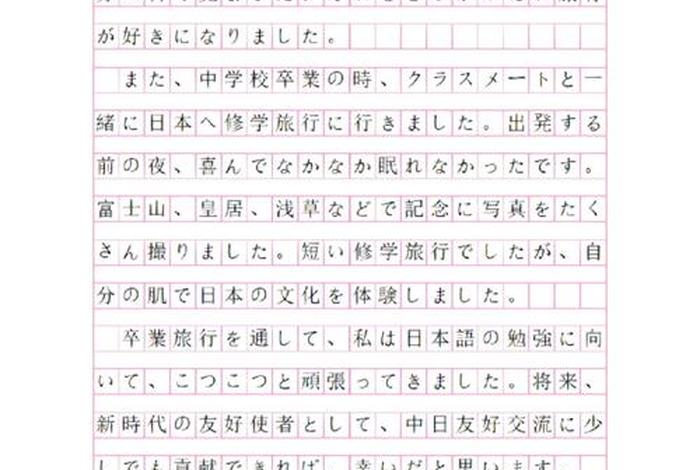 が好きになりました。
また、中学校卒業の時、クラスメートと一
緒に日本へ修学旅行に行きました。出発する
前の夜、喜んでなかなか眠れなかったです。
富士山、皇居、浅草などで記念に写真をたく
さん撮りました。短い修学旅行でしたが、自
分の肌で日本の文化を体験しました。
卒業旅行を通して、私は日本語の勉強に向
いて、こつこつと頑張ってきました。将来、
新時代の友好使者として、中日友好交流に少
しでも貢献できれば、幸いだと思います。